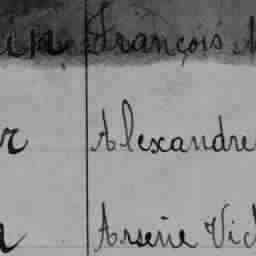 François
Alexandre
Arsène Vic